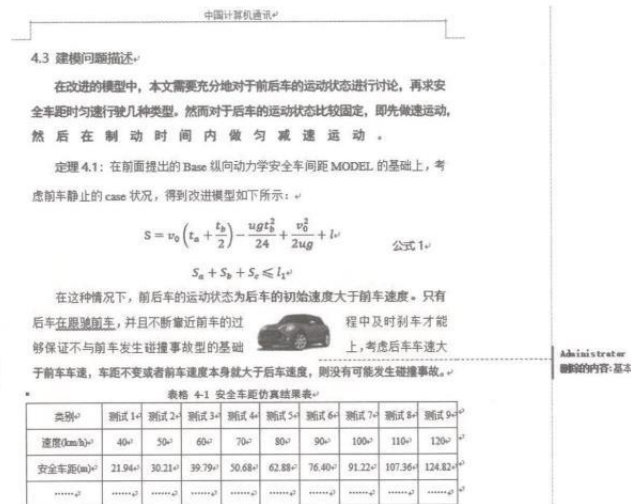 中国计算机通讯
4.3 建模问题描述
在改进的模型中，本文需要充分地对于前后车的运动状态进行讨论，再求安
全车距时匀速行驶几种类型。然而对于后车的运动状态比较固定，即先做速运动，
然后在制动时间内做匀减速运动。
定理 4.1：在前面提出的 Base 纵向动力学安全车间距 MODEL 的基础上，考
虑前车静止的 case 状况，得到改进模型如下所示：
S = v₀(tₐ + t_b/2) − ugt_b²/24 + v₀²/2ug + l
公式 1
Sₐ + S_b + S_c ⩽ l₁
在这种情况下，前后车的运动状态为后车的初始速度大于前车速度。只有
后车在跟驰前车，并且不断靠近前车的过 程中及时刹车才能
够保证不与前车发生碰撞事故型的基础 上，考虑后车车速大
于前车车速，车距不变或者前车速度本身就大于后车速度，则没有可能发生碰撞事故。
Administrator
删除的内容: 基本
表格 4-1 安全车距仿真结果表
类别 测试 1 测试 2 测试 3 测试 4 测试 5 测试 6 测试 7 测试 8 测试 9
速度(km/h) 40 50 60 70 80 90 100 110 120
安全车距(m) 21.94 30.21 39.79 50.68 62.88 76.40 91.22 107.36 124.82
…… …… …… …… …… …… …… …… …… ……